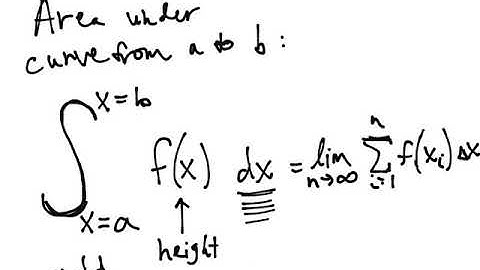 Area under
curve from a to b:
∫_{x=a}^{x=b} f(x) dx = lim_{n→∞} ∑_{i=1}^{n} f(x_i) Δx
height